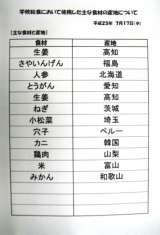 学校給食において使用した主な食材の産地について
平成23年 7月17日(水)
【主な食材と産地】
食材 産地
生姜 高知
さやいんげん 福島
人参 北海道
とうがん 愛知
生姜 高知
ねぎ 茨城
小松菜 埼玉
穴子 ペルー
カニ 韓国
鶏肉 山梨
米 富山
みかん 和歌山